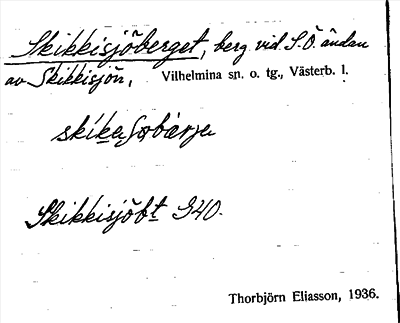 Skikkisjöberget, berg vid S.Ö. ändan
av Skikkisjön, Vilhelmina sn. o. tg., Västerb. l.
Skikkisjöbt G40.
Thorbjörn Eliasson, 1936.